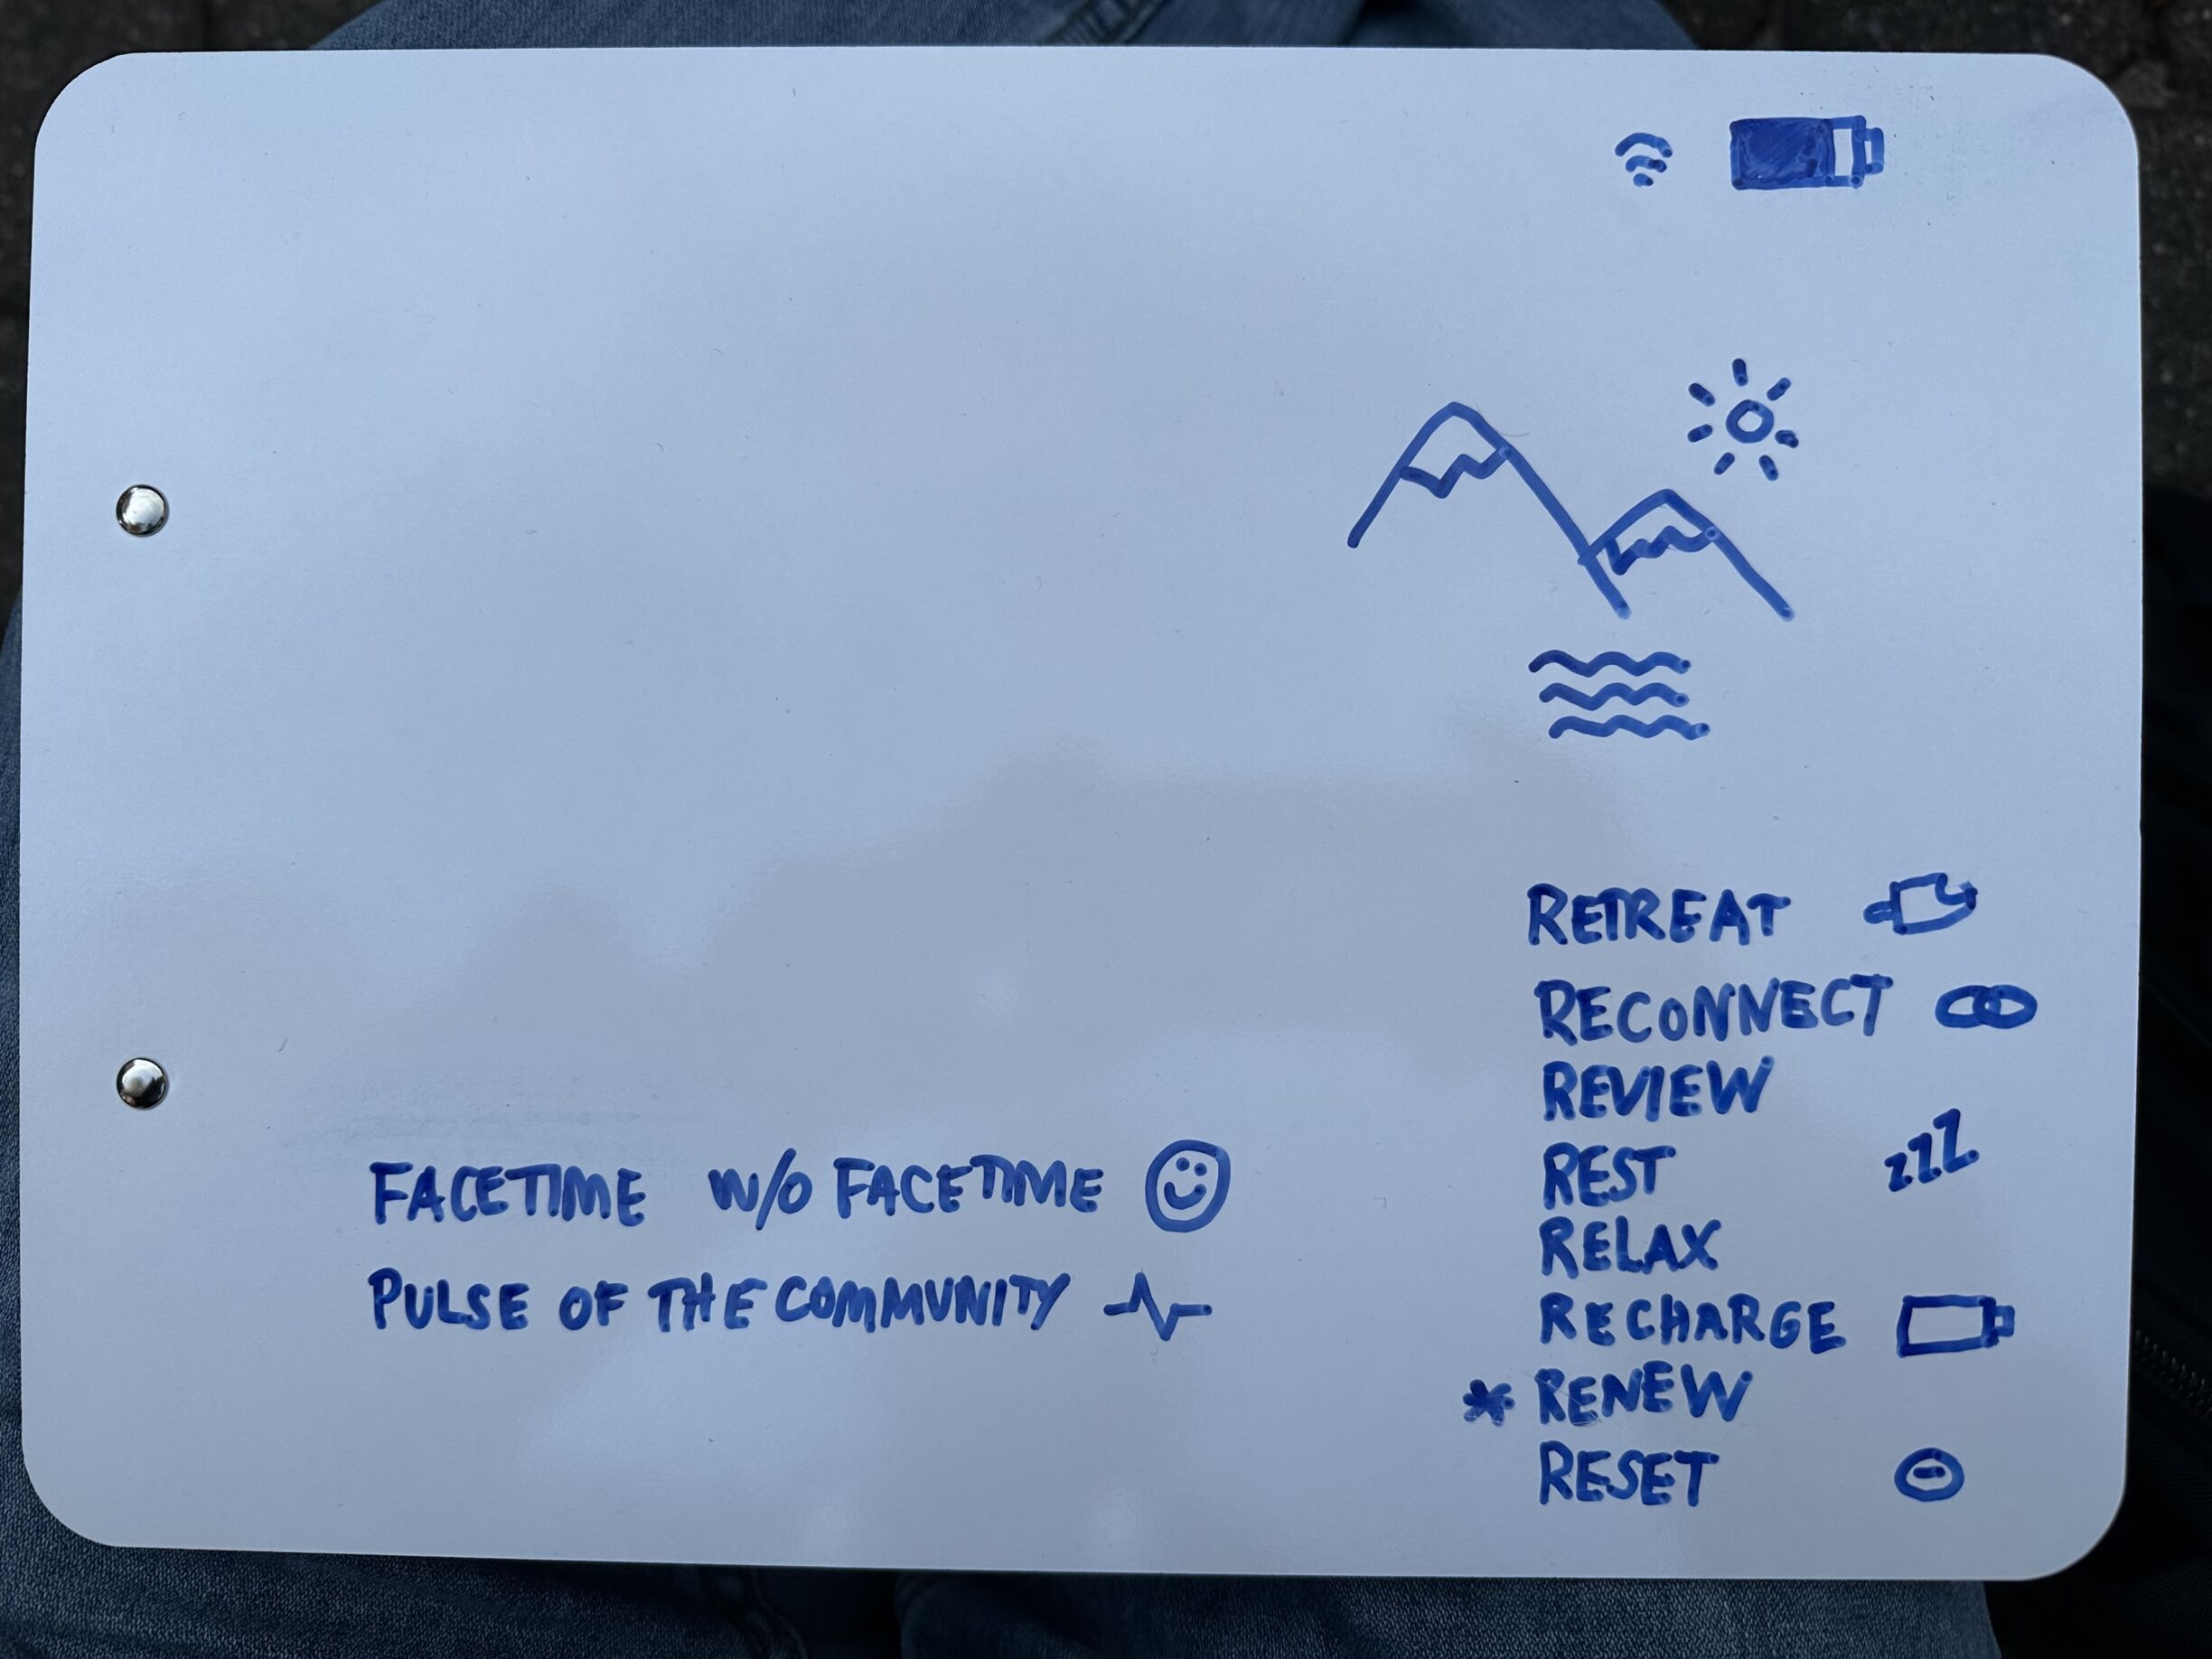 FACETIME W/O FACETIME
PULSE OF THE COMMUNITY
RETREAT
RECONNECT
REVIEW
REST zzZ
RELAX
RECHARGE
* RENEW
RESET